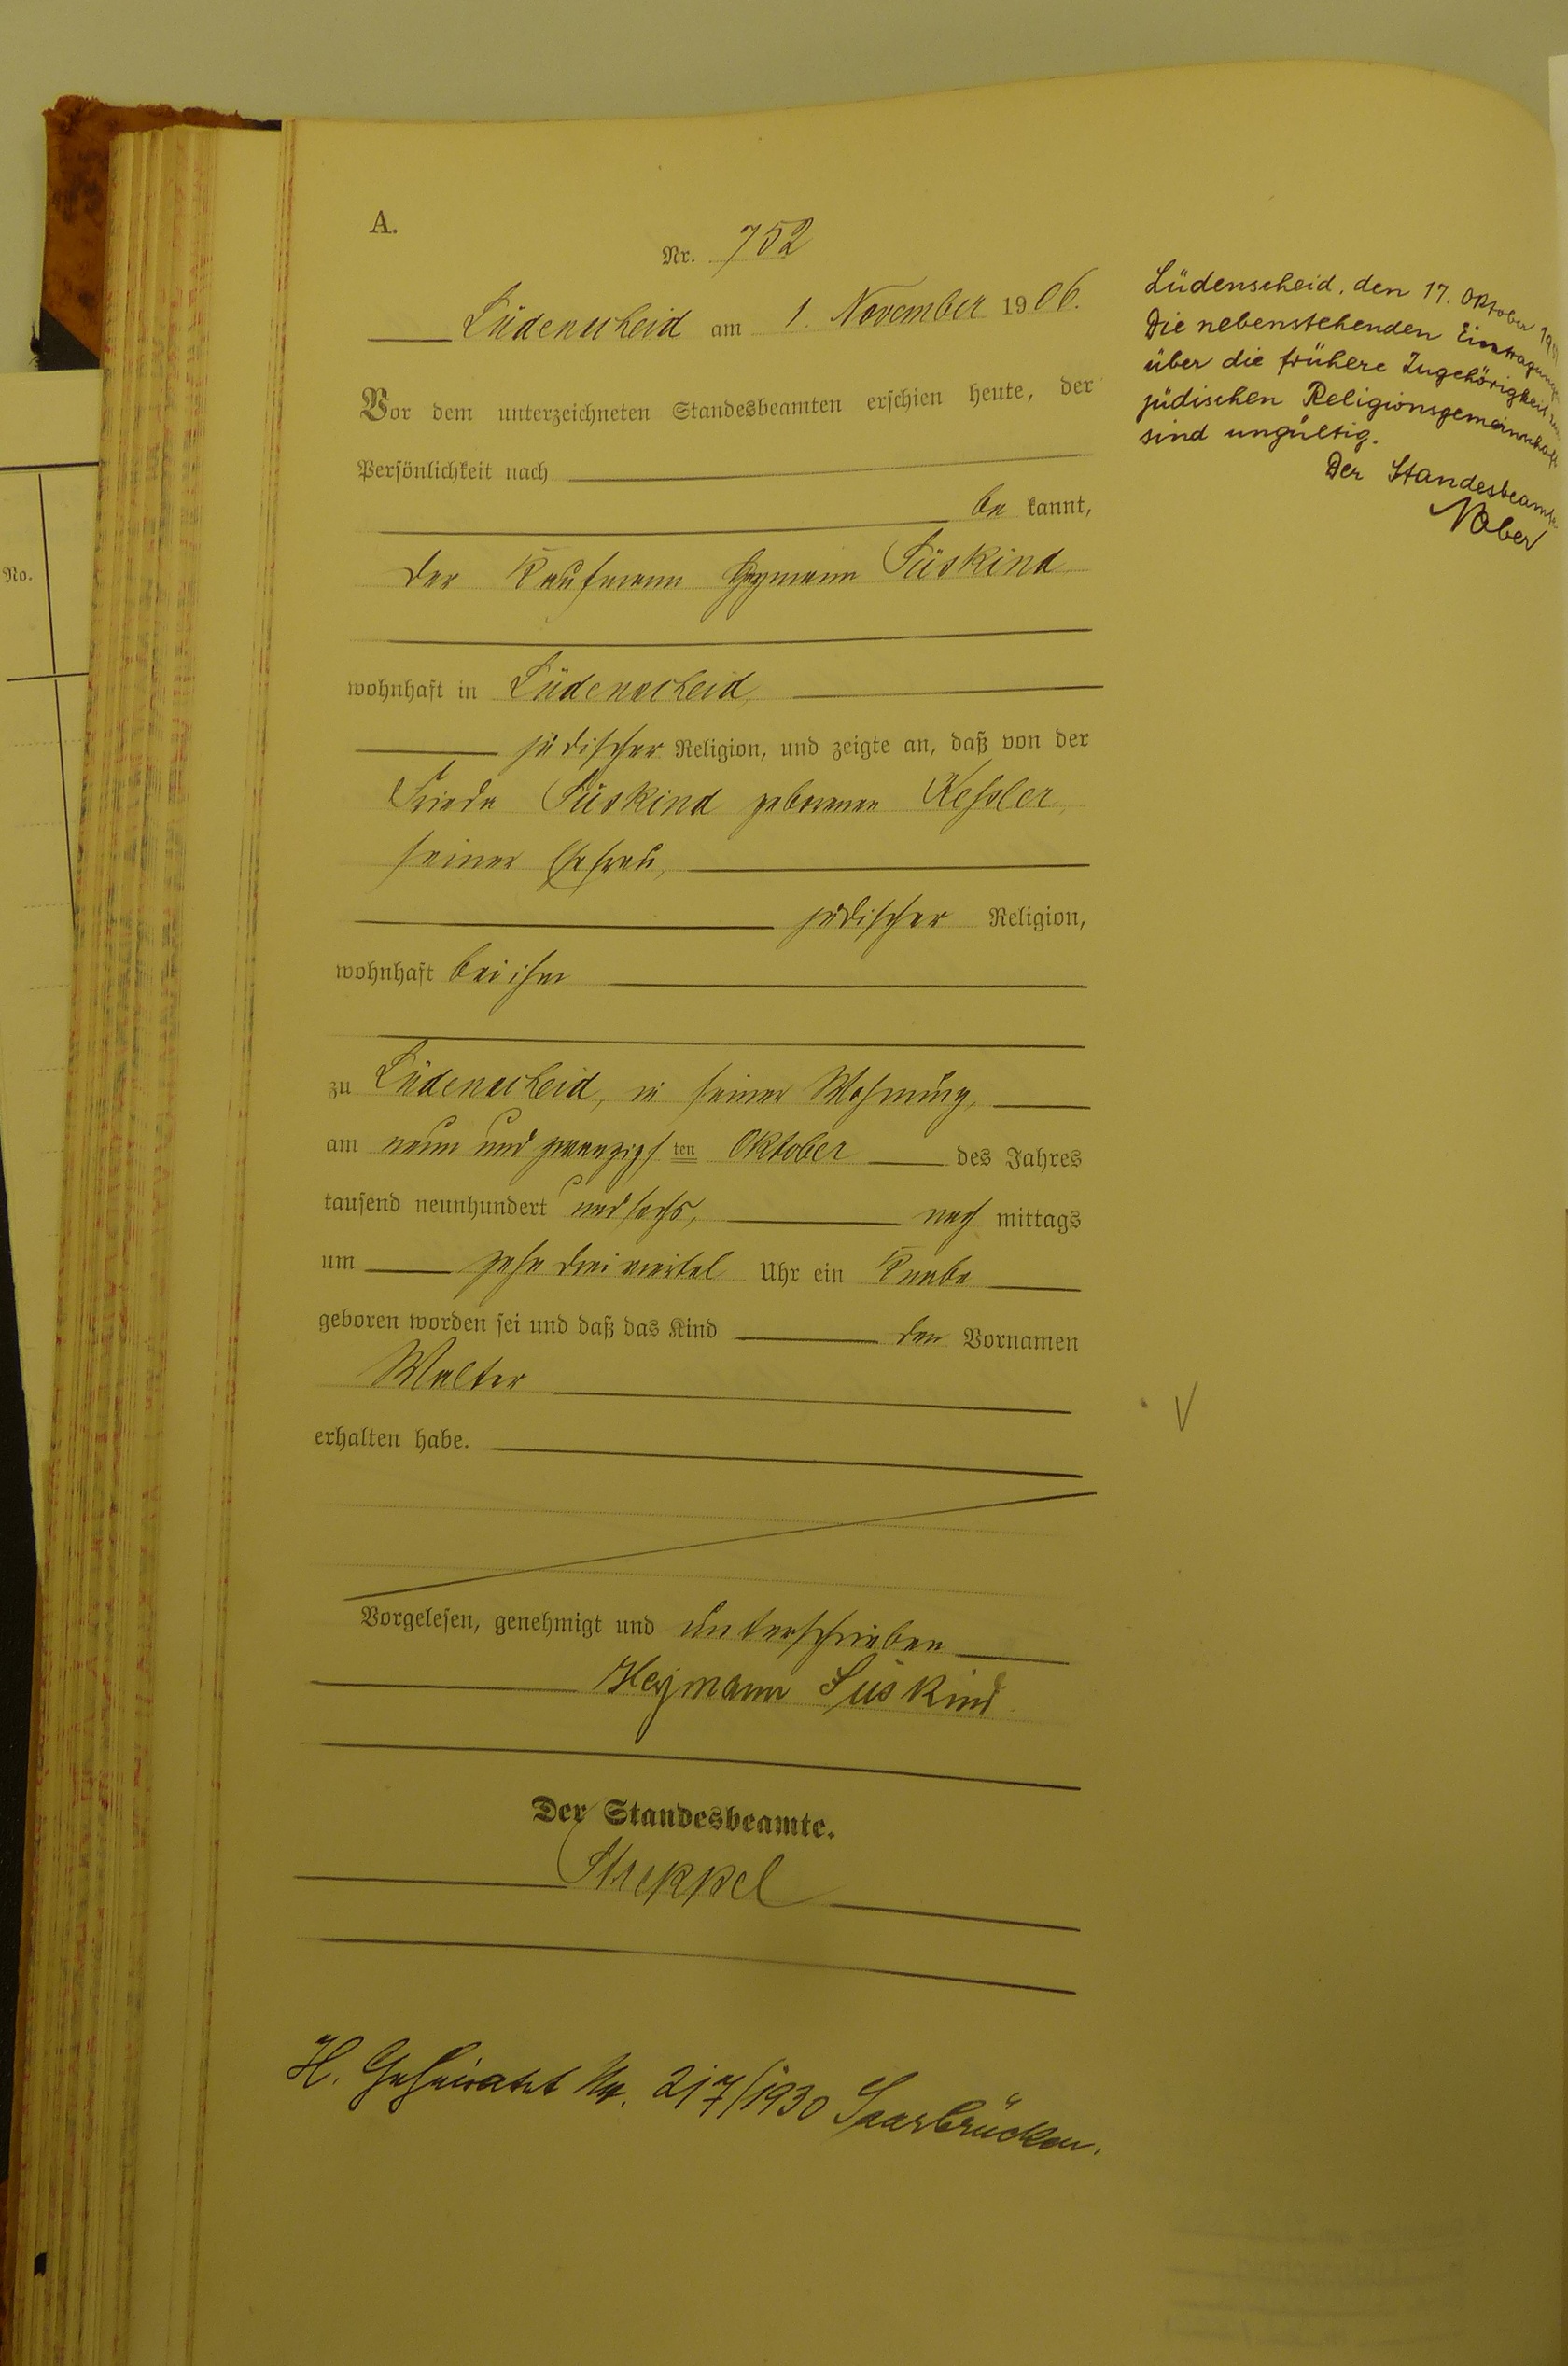 A.
Nr. 752
Lüdenscheid am 1. November 1906.
Vor dem unterzeichneten Standesbeamten erschien heute, der
Persönlichkeit nach
be kannt,
der Kaufmann Heymann Süskind
wohnhaft in Lüdenscheid,
jüdischer Religion, und zeigte an, daß von der
Frieda Süskind geborenen Keßler,
seiner Ehefrau,
jüdischer Religion,
wohnhaft bei ihm
zu Lüdenscheid, in seiner Wohnung,
am neun und zwanzigsten Oktober des Jahres
tausend neunhundert und sechs, nach mittags
um zehn dreiviertel Uhr ein Knabe
geboren worden sei und daß das Kind den Vornamen
Walter
erhalten habe.
Vorgelesen, genehmigt und unterschrieben
Heymann Süskind
Der Standesbeamte.
Streppel
H. Geheiratet Nr. 217/1930 Saarbrücken.
Lüdenscheid, den 17. Oktober
Die nebenstehenden Eintragungen
über die frühere Zugehörigkeit zur
jüdischen Religionsgemeinschaft
sind ungültig.
Der Standesbeamte
Nober
No.